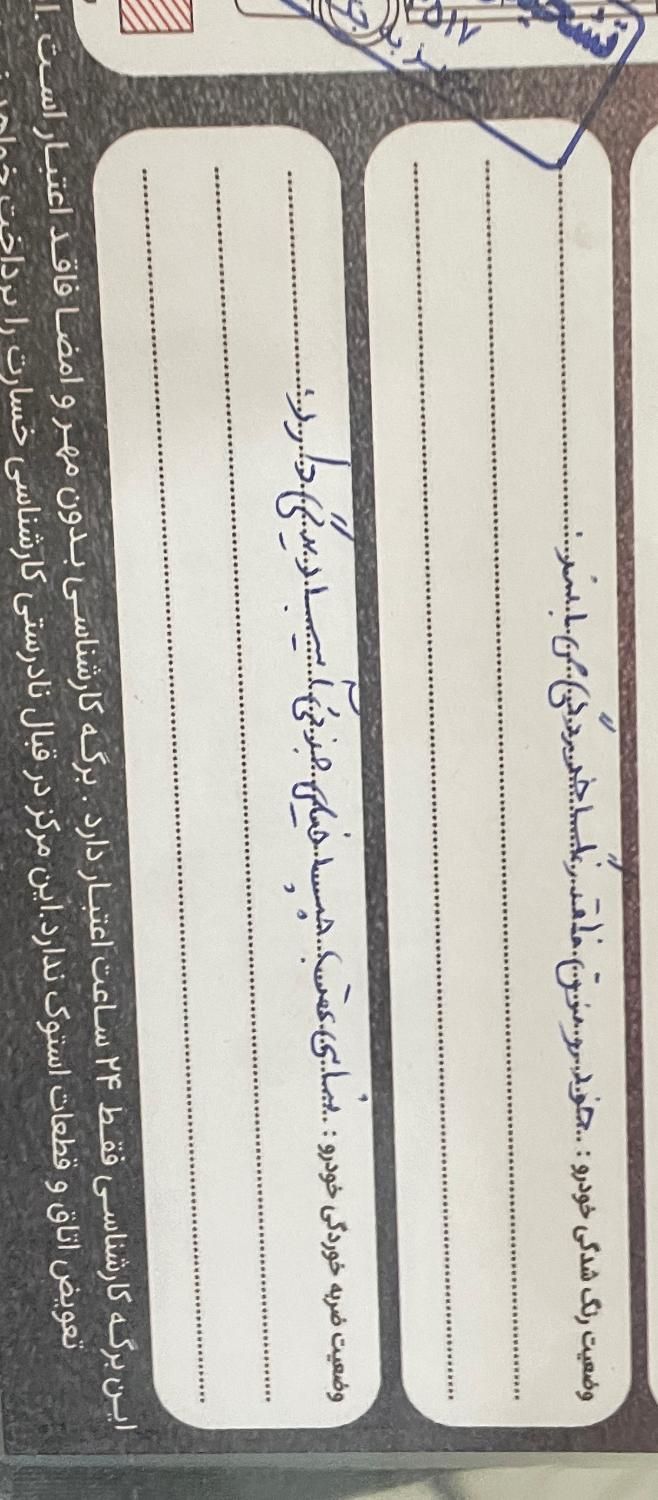 وضعیت رنگ شدگی خودرو : خودرو فوق فاقد رنگ خوردگی می باشد.
وضعیت ضربه خوردگی خودرو : شاسی عقب چپ خیلی جزئی آسیب دیدگی دارد.
این برگه کارشناسی فقط ۲۴ ساعت اعتبار دارد . برگه کارشناسی بدون مهر و امضا فاقد اعتبار است .
تعویض اتاق و قطعات استوک ندارد.این مرکز در قبال نادرستی کارشناسی خسارت را پرداخت